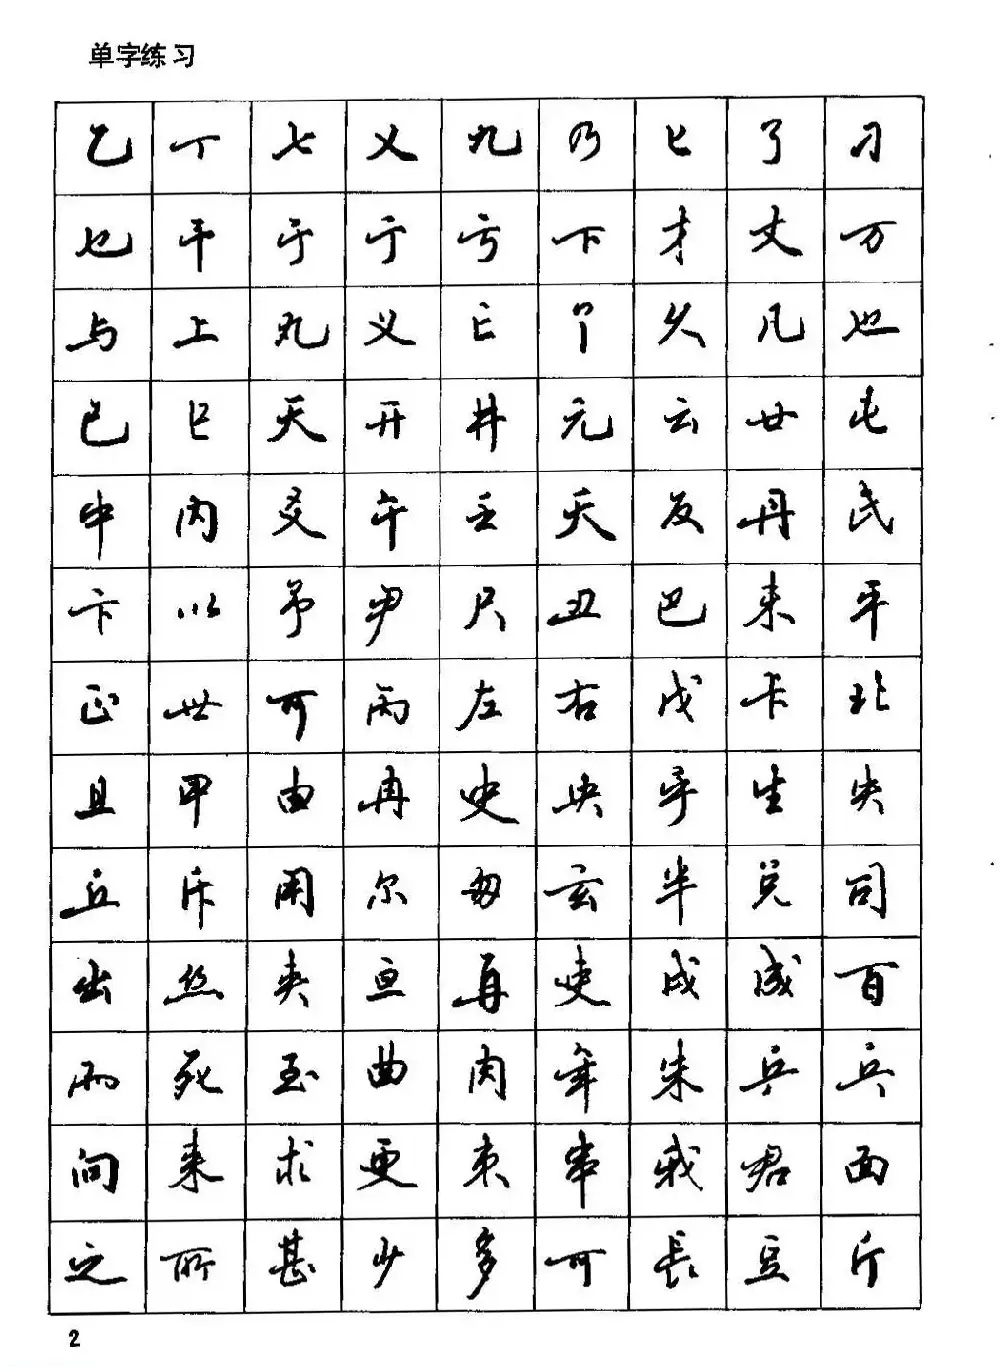 单字练习
乙 丁 七 乂 九 乃 匕 了 刁
也 干 于 亍 亏 下 才 丈 万
与 上 丸 义 亡 卩 久 凡 也
已 巳 天 开 井 元 云 廿 屯
中 内 爻 午 壬 夭 反 丹 氏
卞 以 予 尹 尺 丑 巴 未 平
正 世 可 丙 左 右 戊 卡 北
且 甲 由 冉 史 央 乎 生 失
丘 斥 用 尔 匆 玄 半 兑 司
出 丝 夹 亘 再 吏 戌 咸 百
而 死 至 曲 肉 年 朱 乒 兵
向 来 求 更 束 串 我 君 面
之 所 甚 少 多 可 長 豆 斤
2